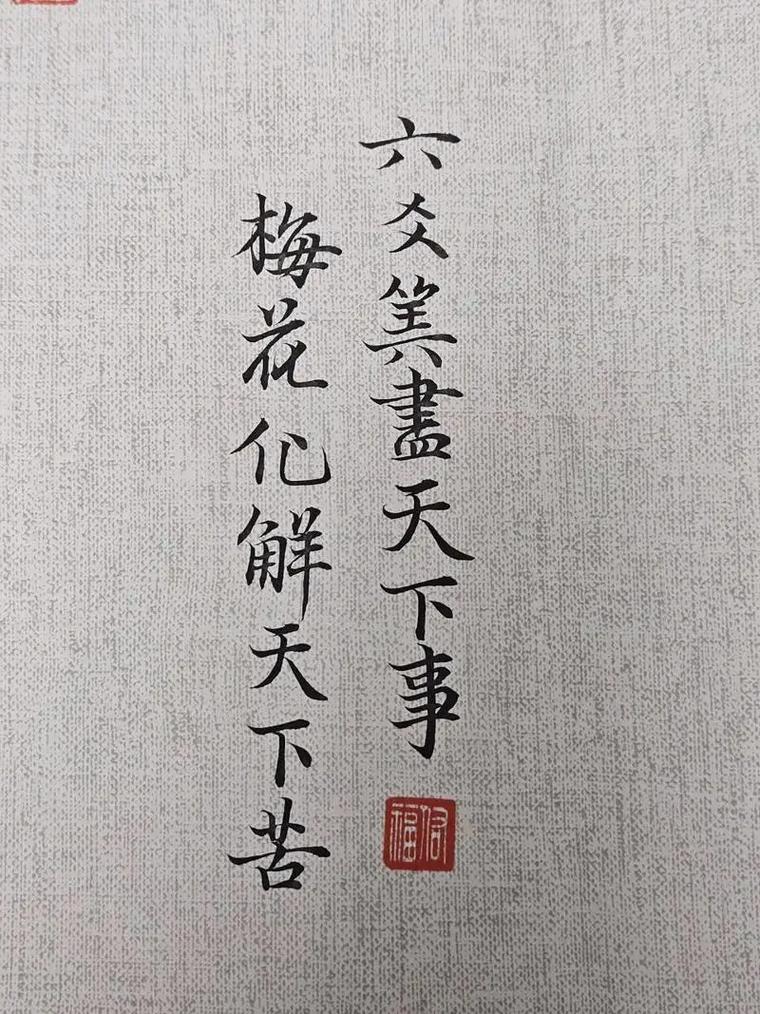 六爻筭盡天下事
梅花化解天下苦